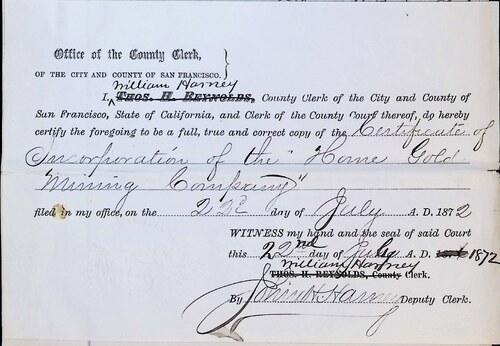 Office of the County Clerk,
OF THE CITY AND COUNTY OF SAN FRANCISCO.
William Harney
I, THOS. H. REYNOLDS, County Clerk of the City and County of
San Francisco, State of California, and Clerk of the County Court thereof, do hereby
certify the foregoing to be a full, true and correct copy of the Certificate of
Incorporation of the "Home Gold
Mining Company"
filed in my office, on the 22d day of July A. D. 1872
WITNESS my hand and the seal of said Court
this 22nd day of July A. D. 1872
William Harney
THOS. H. REYNOLDS, County Clerk.
By Harney Deputy Clerk.